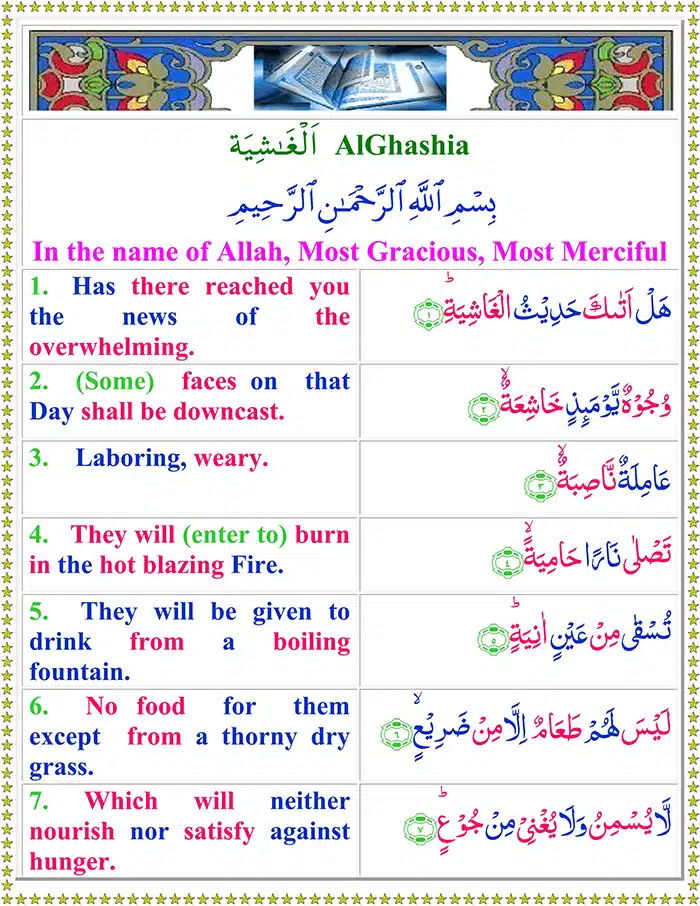 اَلْغَاشِيَة AlGhashia
بِسْمِ ٱللَّهِ ٱلرَّحْمَـٰنِ ٱلرَّحِيمِ
In the name of Allah, Most Gracious, Most Merciful
1. Has there reached you
the news of the
overwhelming.
هَلْ اَتٰىكَ حَدِيْثُ الْغَاشِيَةِؕ ﴿۱﴾
2. (Some) faces on that
Day shall be downcast.
وُجُوْهٌ يَّوْمَىِٕذٍ خَاشِعَةٌ ۙ ﴿۲﴾
3. Laboring, weary.
عَامِلَةٌ نَّاصِبَةٌ ۙ ﴿۳﴾
4. They will (enter to) burn
in the hot blazing Fire.
تَصْلٰى نَارًا حَامِيَةً ۙ ﴿۴﴾
5. They will be given to
drink from a boiling
fountain.
تُسْقٰى مِنْ عَيْنٍ اٰنِيَةٍؕ ﴿۵﴾
6. No food for them
except from a thorny dry
grass.
لَيْسَ لَهُمْ طَعَامٌ اِلَّا مِنْ ضَرِيْعٍ ۙ ﴿۶﴾
7. Which will neither
nourish nor satisfy against
hunger.
لَّا يُسْمِنُ وَلَا يُغْنِىْ مِنْ جُوْعٍؕ ﴿۷﴾